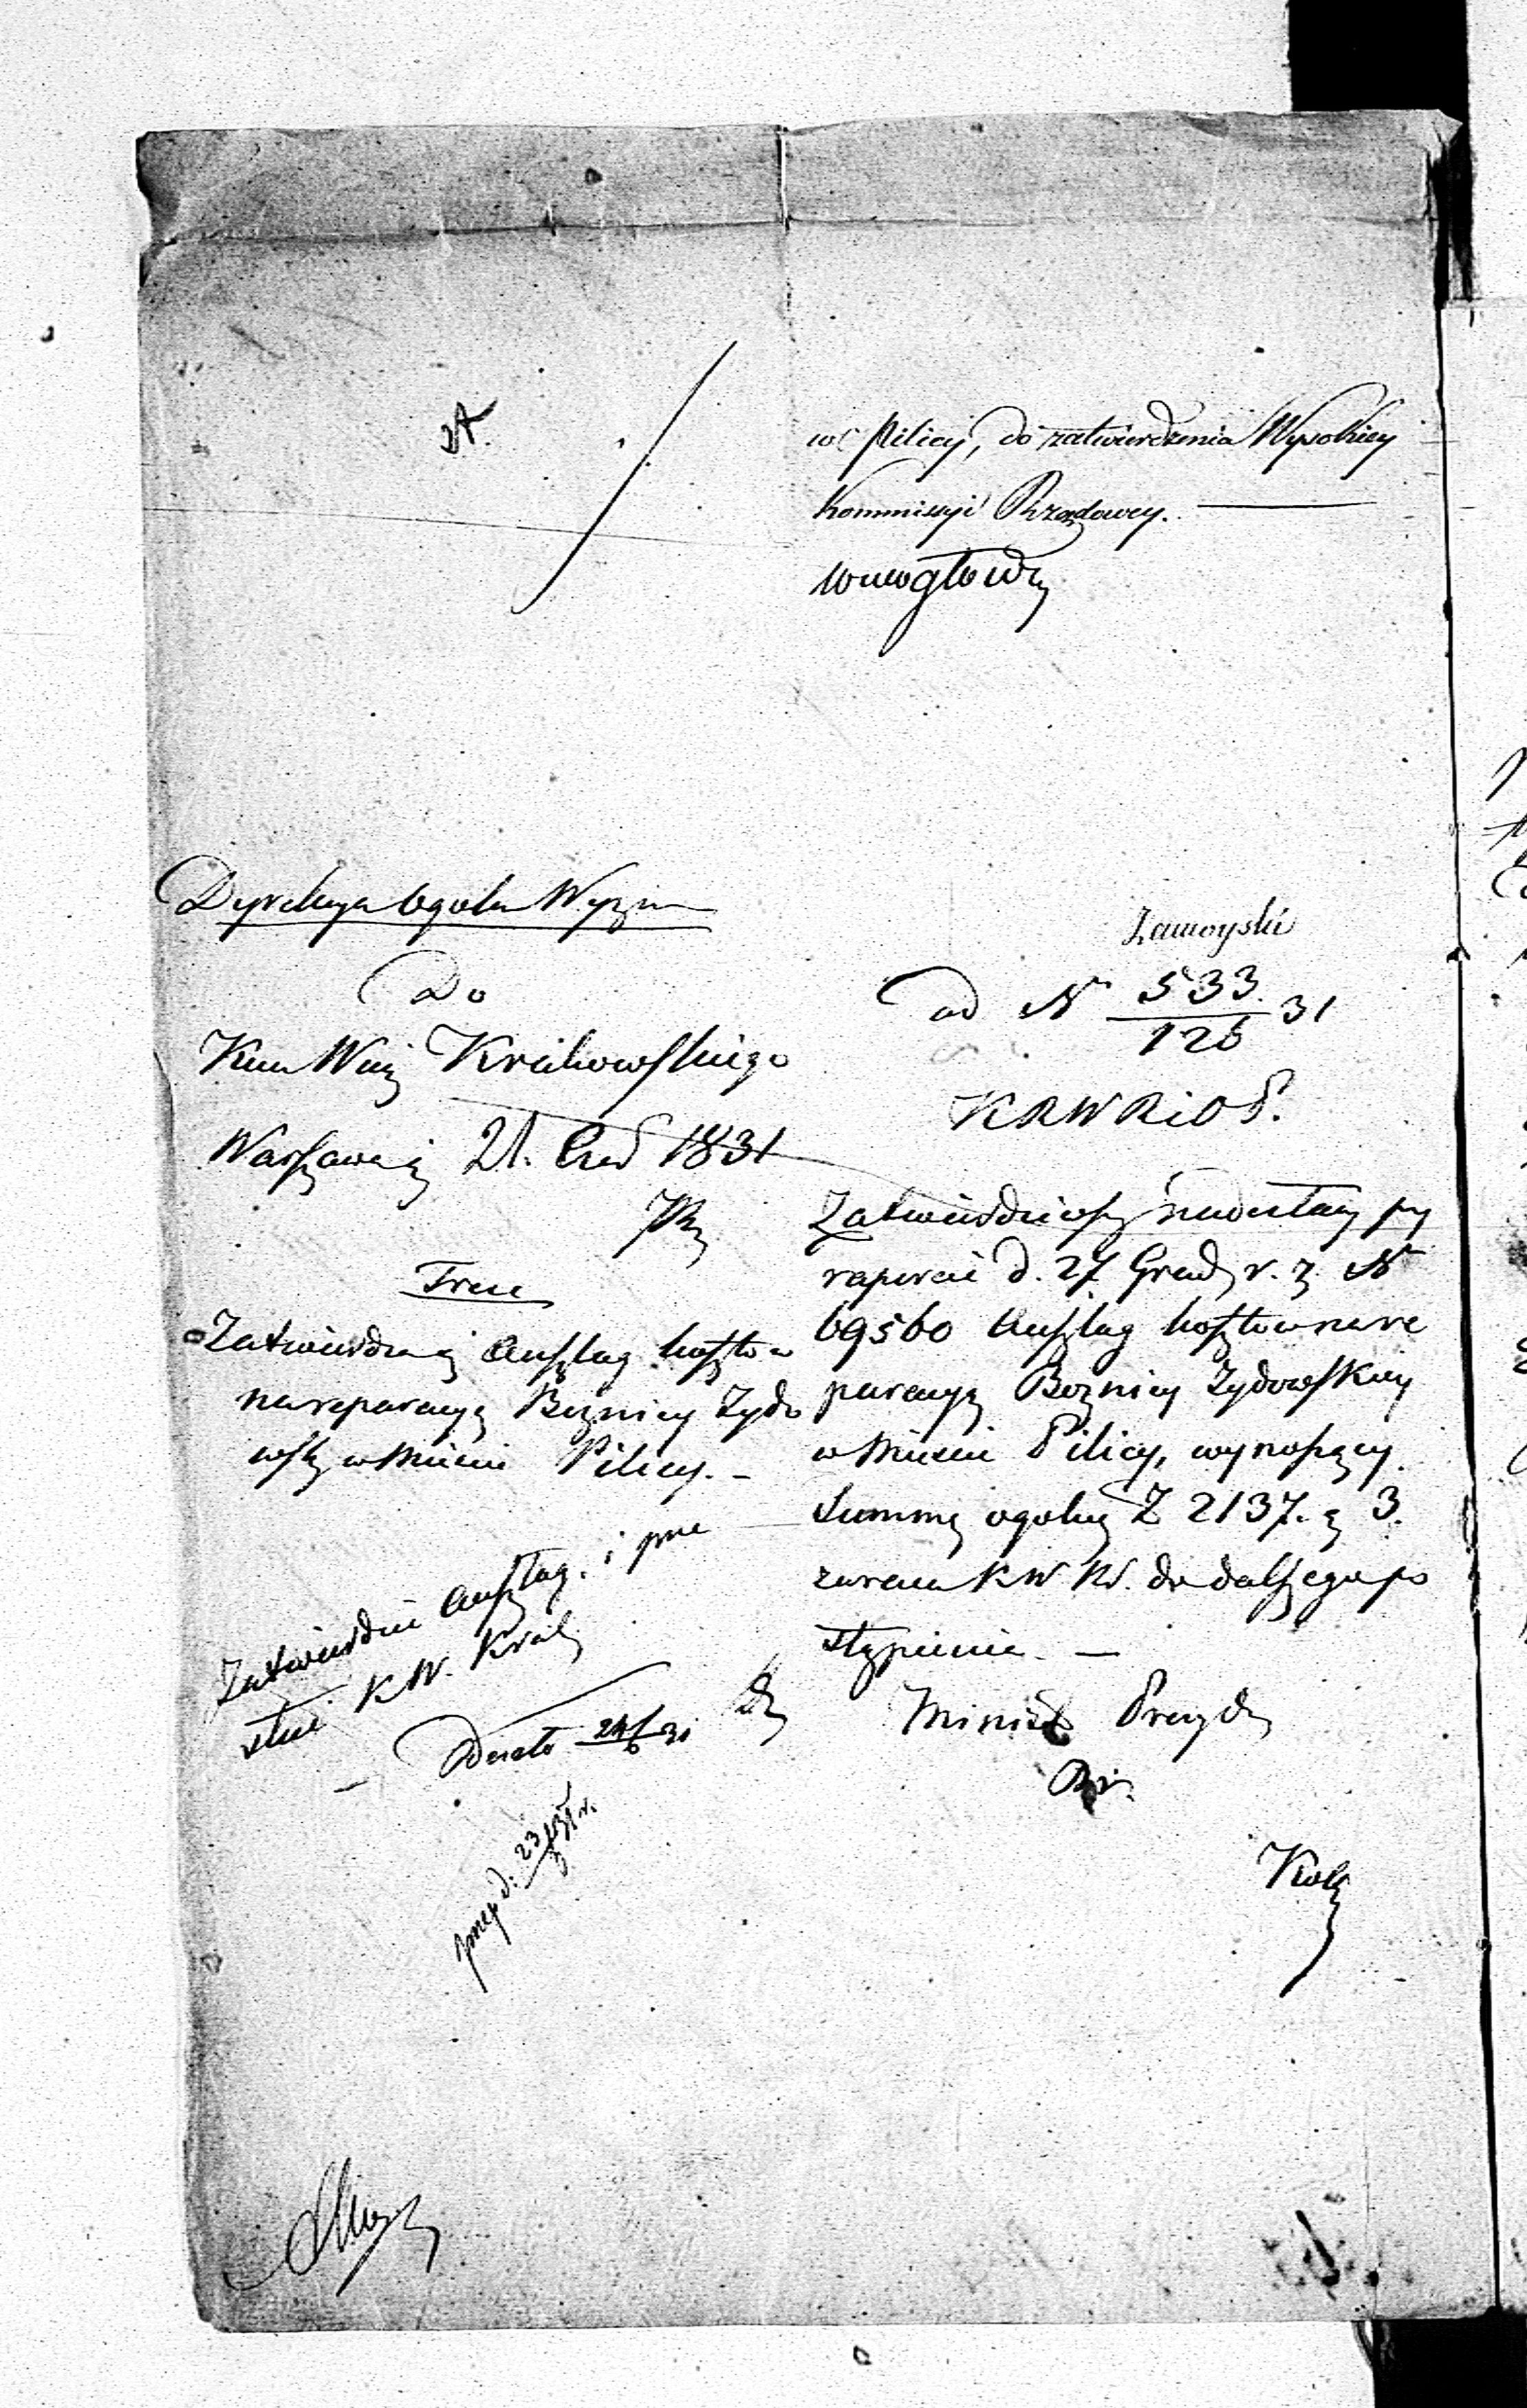 w Pilicy, do zatwierdzenia Wysokiey
Kommissyi Rządowey.
Zamoyski
Dyrekcya Ogolna Wyzn
Do
Kom Woj Krakowskiego
Warszawa 21. Czer 1831
Tresc
Zatwierdza Anszlag kosztow
na reparacyę Boznicy Zydo
wsk w Miescie Pilicy. –
Zatwierdzic Anszlag. i prze
słac KW. Krak
23/6 31 r.
ad N 533/126 31
KRWRiOP.
Zatwierdziwszy nadesłany przy
raporcie d. 27 Grud r. z. N
69560 Anszlag kosztow na re
paracyę Boznicy Zydowskiey
w Miescie Pilicy, wynoszący
Summę ogolną Z 2137. g 3.
zwraca KW Kr. do dalszego po
stąpienia. —
Minist Prezyd